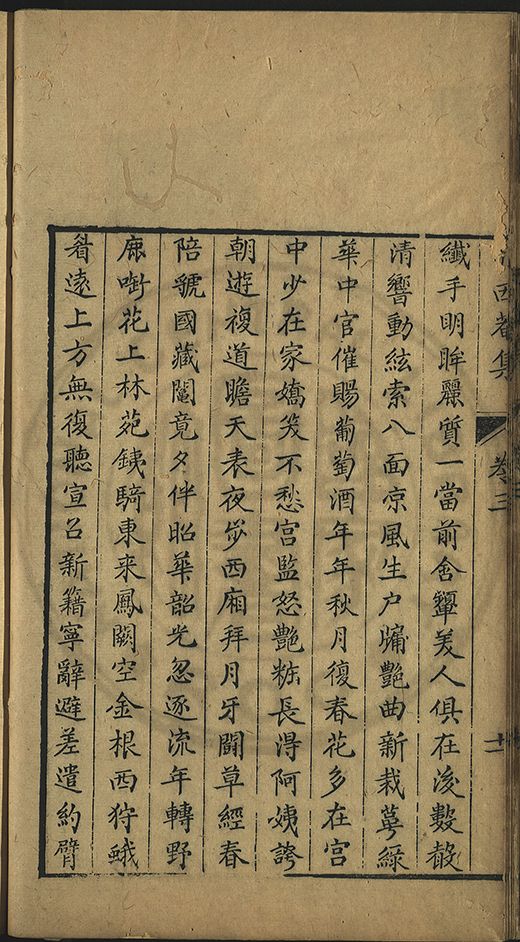 西菴集 卷三 十一
纖手明眸麗質一當前含顰美人俱在後數聲
清響動絃索八面凉風生户牖艶曲新栽萼綠
華中官催賜葡萄酒年年秋月復春花多在宫
中少在家嬌笑不愁宫監怒艶粧長得阿姨誇
朝遊複道瞻天表夜步西廂拜月牙鬭草經春
陪虢國藏鬮竟夕伴昭華韶光忽逐流年轉野
鹿啣花上林苑鐵騎東来鳳闕空金根西狩蛾
眉遠上方無復聽宣召新籍寧辭避差遣約臂